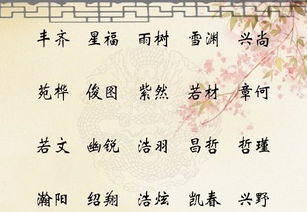 丰齐 星福 雨树 雪渊 兴尚
苑桦 俊图 紫然 若材 章何
若文 幽锐 浩羽 昌哲 哲瑾
瀚阳 绍翔 浩炫 凯春 兴野